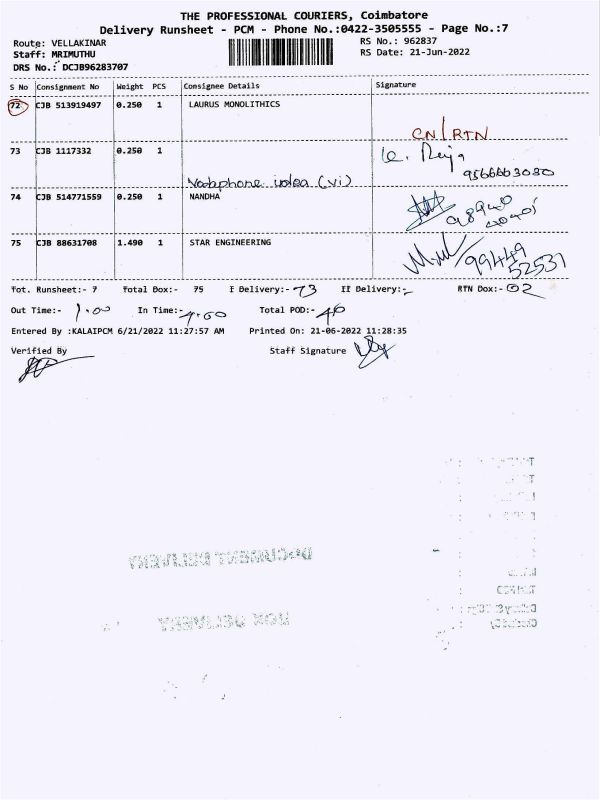 THE PROFESSIONAL COURIERS, Coimbatore
Delivery Runsheet - PCM - Phone No.:0422-3505555 - Page No.:7
Route: VELLAKINAR RS No.: 962837
Staff: MRIMUTHU RS Date: 21-Jun-2022
DRS No.: DCJB96283707
S No Consignment No Weight PCS Consignee Details Signature
72 CJB 513919497 0.250 1 LAURUS MONOLITHICS
CN/RTN
73 CJB 1117332 0.250 1
9566663030
Vodaphone idea (vi)
74 CJB 514771559 0.250 1 NANDHA
75 CJB 88631708 1.490 1 STAR ENGINEERING
99449
52531
Tot. Runsheet:- 7 Total Dox:- 75 I Delivery:- 73 II Delivery:- RTN Dox:- 02
Out Time:- 1.00 In Time:- 4.00 Total POD:-
Entered By :KALAIPCM 6/21/2022 11:27:57 AM Printed On: 21-06-2022 11:28:35
Verified By Staff Signature
DOCUMENT DELIVERY
BOX DELIVERY